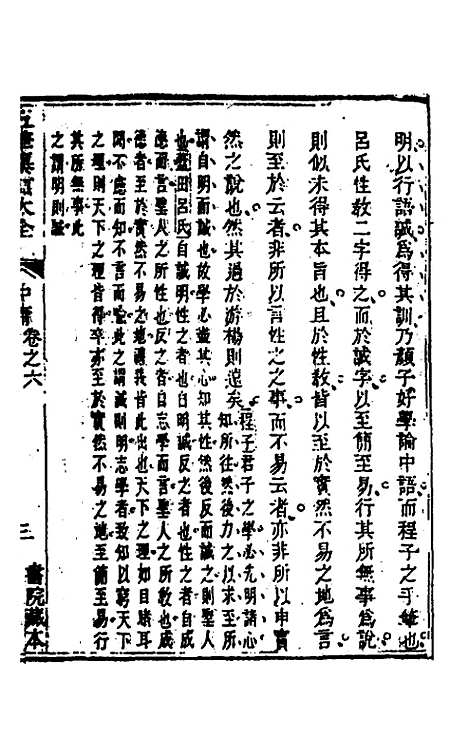 明以行語誠爲得其訓乃顏子好學論中語而程子之手筆也
呂氏性教二字得之而於誠字以至簡至易行其所無事爲說
則似未得其本旨也且於性教皆以至於實然不易之地爲言
則至於云者非所以言性之事而不易云者亦非所以申實
然之說也然其過於游楊則遠矣
程子君子之學必先明諸心
知所往然後力之以求至所
謂自明而誠也故學必盡其心知其性然後反而誠之則聖人
也藍田呂氏自誠明性之者也自明誠反之者也性之者自成
德而言聖人之所性也反之者自志學而言聖人之所教也成
德者至於實然不易之地理義皆此出也天下之理如目睹耳
聞不慮而知不言而喻此之謂誠則明志學者致知以窮天下
之理則天下之理皆得卒亦至於實然不易之地至簡至易行
其所無事此
之謂明則誠
中庸卷之六
三
書院藏本